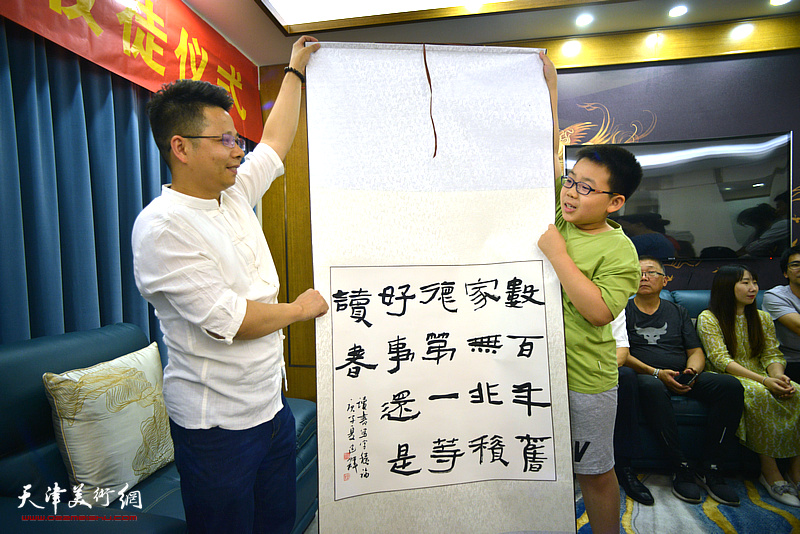 徒仪式
數百年舊
家無非積
德第一等
好事還是
讀書
天津美術網